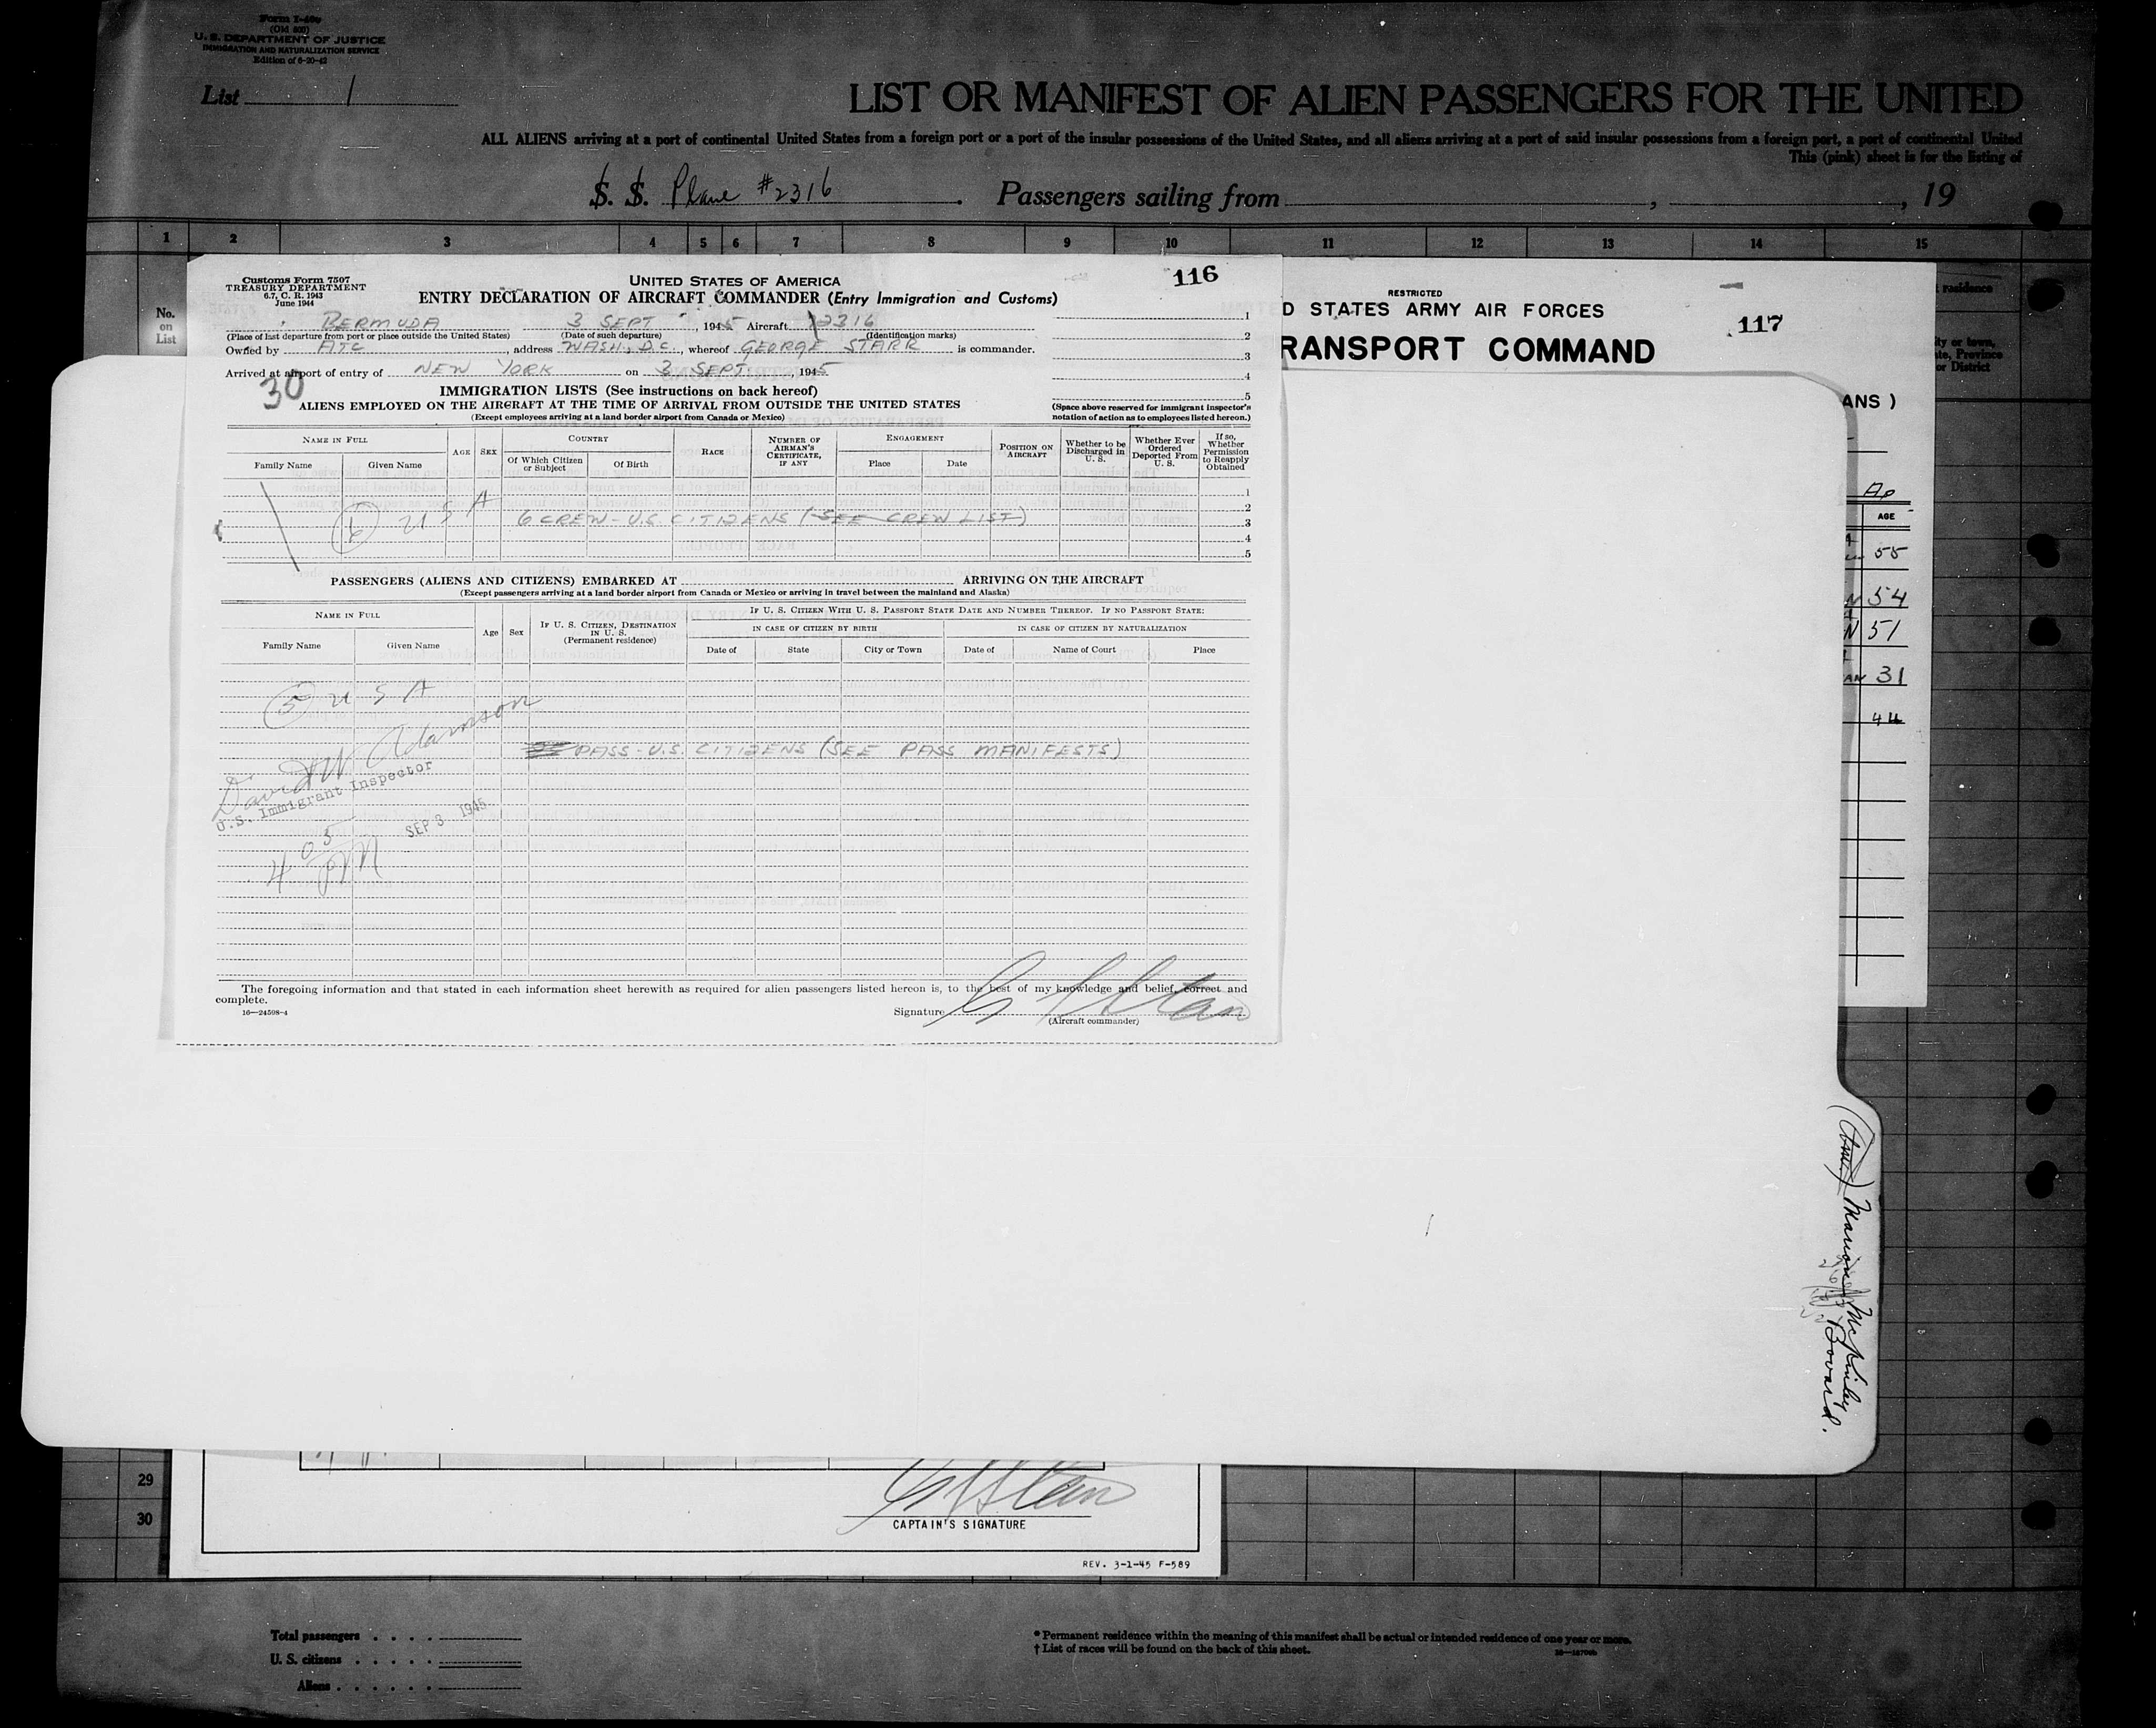 Form I-480
(Old 500)
U. S. DEPARTMENT OF JUSTICE
IMMIGRATION AND NATURALIZATION SERVICE
Edition of 6-20-42
List 1
LIST OR MANIFEST OF ALIEN PASSENGERS FOR THE UNITED
ALL ALIENS arriving at a port of continental United States from a foreign port or a port of the insular possessions of the United States, and all aliens arriving at a port of said insular possessions from a foreign port, a port of continental United
This (pink) sheet is for the listing of
S. S. Plane #2316 . Passengers sailing from , , 19
1 2 3 4 5 6 7 8 9 10 11 12 13 14 15
No. on List
residence
ity or town,
ate, Province
or District
Customs Form 7507
TREASURY DEPARTMENT
6.7, C. R. 1943
June 1944
UNITED STATES OF AMERICA
116
ENTRY DECLARATION OF AIRCRAFT COMMANDER (Entry Immigration and Customs)
BERMUDA 3 SEPT , 1945 Aircraft 2316
(Place of last departure from port or place outside the United States) (Date of such departure) (Identification marks)
Owned by ATC , address WASH, D.C. , whereof GEORGE STARR is commander.
Arrived at airport of entry of NEW YORK on 3 SEPT , 1945
30
1
2
3
4
5
(Space above reserved for immigrant inspector's
notation of action as to employees listed hereon.)
IMMIGRATION LISTS (See instructions on back hereof)
ALIENS EMPLOYED ON THE AIRCRAFT AT THE TIME OF ARRIVAL FROM OUTSIDE THE UNITED STATES
(Except employees arriving at a land border airport from Canada or Mexico)
NAME IN FULL AGE SEX COUNTRY RACE NUMBER OF AIRMAN'S CERTIFICATE, IF ANY ENGAGEMENT POSITION ON AIRCRAFT Whether to be Discharged in U. S. Whether Ever Ordered Deported From U. S. If so, Whether Permission to Reapply Obtained
Family Name Given Name Of Which Citizen or Subject Of Birth Place Date
1
2
6 U S A 6 CREW - U.S. CITIZENS (SEE CREW LIST) 3
4
5
PASSENGERS (ALIENS AND CITIZENS) EMBARKED AT ARRIVING ON THE AIRCRAFT
(Except passengers arriving at a land border airport from Canada or Mexico or arriving in travel between the mainland and Alaska)
NAME IN FULL Age Sex IF U. S. CITIZEN, DESTINATION IN U. S. (Permanent residence) IF U. S. CITIZEN WITH U. S. PASSPORT STATE DATE AND NUMBER THEREOF. IF NO PASSPORT STATE:
IN CASE OF CITIZEN BY BIRTH IN CASE OF CITIZEN BY NATURALIZATION
Family Name Given Name Date of State City or Town Date of Name of Court Place
5 U S A
PASS - U.S. CITIZENS (SEE PASS MANIFESTS)
David W Adamson
U.S. Immigrant Inspector
SEP 3 1945
4 05 PM
The foregoing information and that stated in each information sheet herewith as required for alien passengers listed hereon is, to the best of my knowledge and belief, correct and
complete.
16—24598-4
Signature G Starr
(Aircraft commander)
RESTRICTED
D STATES ARMY AIR FORCES
117
RANSPORT COMMAND
ANS )
AGE
55
N 54
N 51
AN 31
44
Marion McKinley
Bovard.
29
30
CAPTAIN'S SIGNATURE
REV. 3-1-45 F-589
Total passengers . . . .
U. S. citizens . . . . .
Aliens . . . . . .
* Permanent residence within the meaning of this manifest shall be actual or intended residence of one year or more.
† List of races will be found on the back of this sheet.